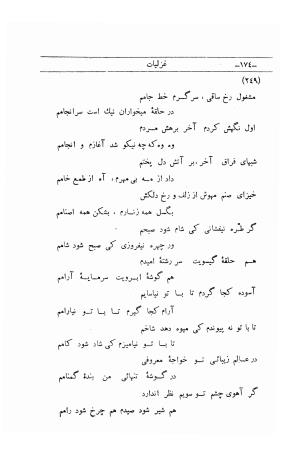 -١٧٤- غزلیات
(٢٤٩)
مشغول رخ ساقی ، سرگرم خط جامم
در حلقهٔ میخواران نیك است سرانجامم
اول نگهش کردم آخر برهش مردم
وه وه که چه نیکو شد آغازم و انجامم
شبهای فراق آخر، بر آتش دل پختم
داد از مه بی مهرم، آه از طمع خامم
خیزای صنم مهوش از زلف و رخ دلکش
بگسل همه زنارم ، بشکن همه اصنامم
گر طره بیفشانی کی شام شود صبحم
ور چهره نیفروزی کی صبح شود شامم
هم حلقهٔ گیسویت سر رشتهٔ امیدم
هم گوشهٔ ابرویت سرمایهٔ آرامم
آسوده کجا گردم تا با تو نیاسایم
آرام کجا گیرم تا با تو نیارامم
تا با تو نه پیوندم کی میوه دهد شاخم
تا با تو نیامیزم کی شاد شود کامم
در عالم زیبائی تو خواجهٔ معروفی
در گوشهٔ تنهائی من بندهٔ گمنامم
گر آهوی چشم تو سویم نظر اندازد
هم شیر شود صیدم هم چرخ شود رامم